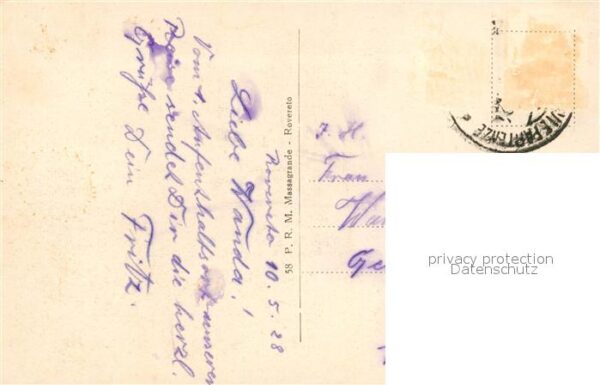 Rovereto 10.5.28
Liebe Wanda!
Vom 1. Aufenthaltsort unserer
Reise sendet Dir die herzl.
Grüße Dein Fritz.
58 P. R. M. Massagrande - Rovereto
Frau
privacy protection
Datenschutz